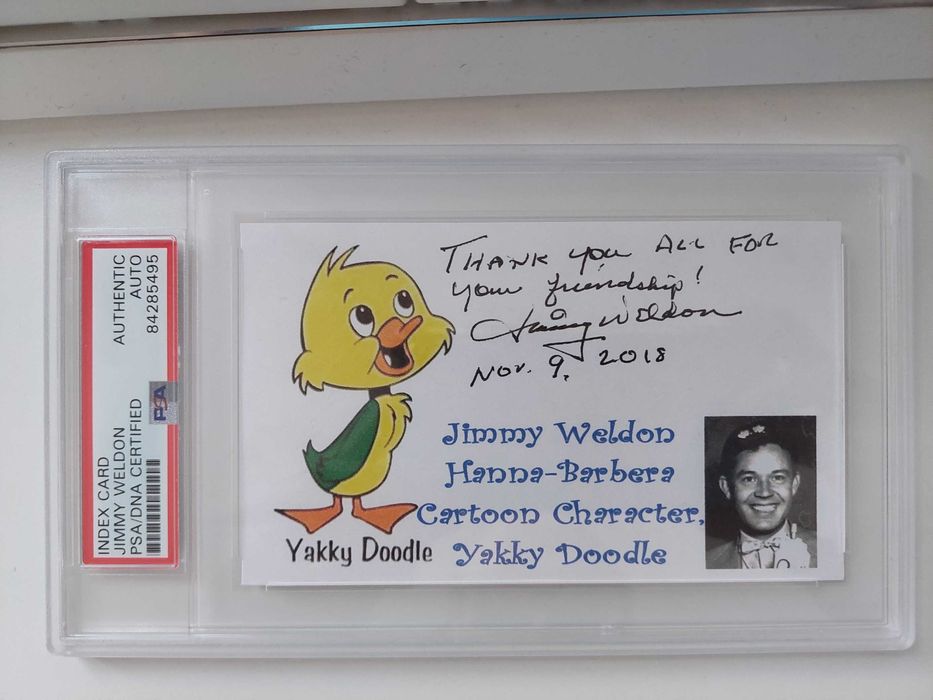 INDEX CARD
JIMMY WELDON
PSA/DNA CERTIFIED
AUTHENTIC
AUTO
84285495
PSA
THANK you ALL FOR
your friendship!
Jimmy Weldon
Nov. 9, 2018
Jimmy Weldon
Hanna-Barbera
Cartoon Character,
Yakky Doodle
Yakky Doodle